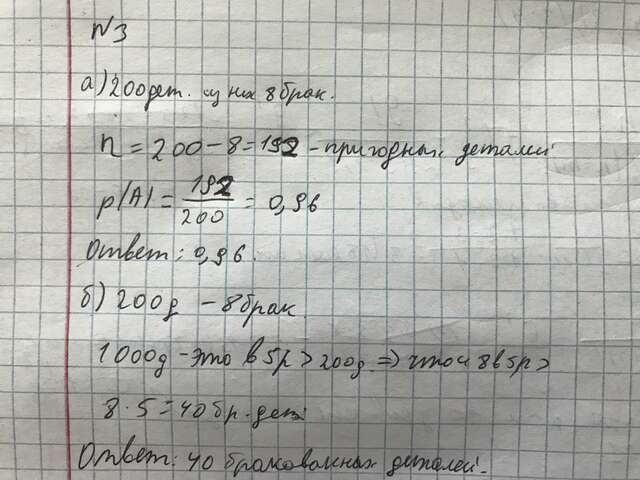 N3
а) 200дет. из них 8 брак.
n = 200 - 8 = 192 - пригодных деталей
p(A) = 192/200 = 0,96
Ответ: 0,96.
б) 200д - 8 брак
1000д - это в 5р > 200д. => что и 8 в 5р >
8 · 5 = 40 бр. дет.
Ответ: 40 бракованных деталей.